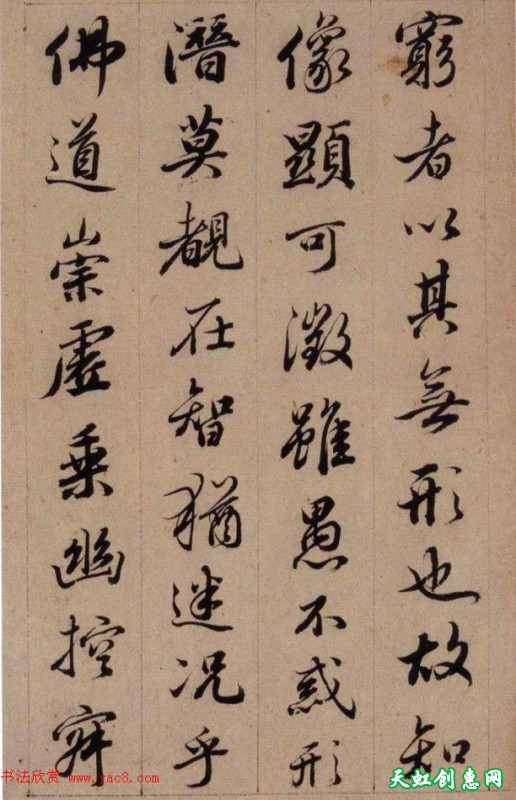 窮者以其無形也故知
像顯可徵雖愚不惑形
潛莫覩在智猶迷况乎
佛道崇虛乘幽控寂
书法欣赏 www.yac8.com
天虹创惠网